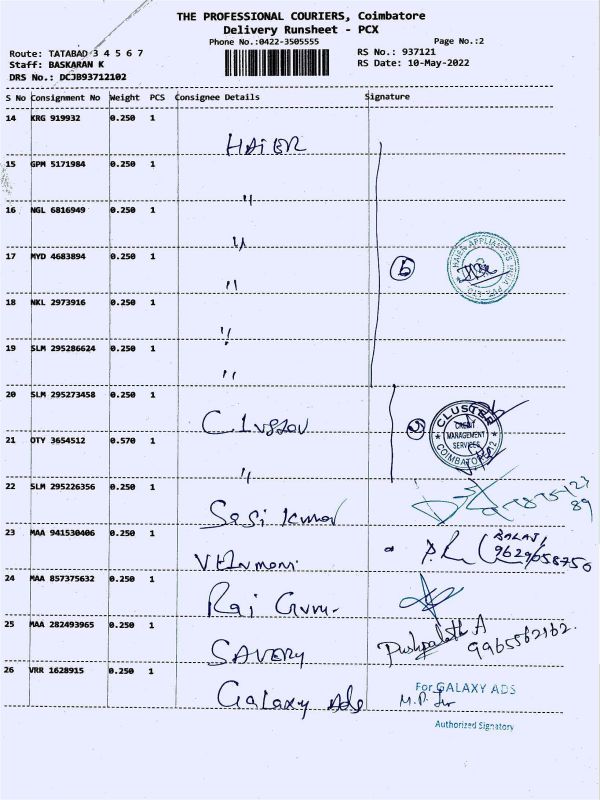 THE PROFESSIONAL COURIERS, Coimbatore
Delivery Runsheet - PCX
Phone No.:0422-3505555 Page No.:2
Route: TATABAD 3 4 5 6 7 RS No.: 937121
Staff: BASKARAN K RS Date: 10-May-2022
DRS No.: DCJB93712102
S No Consignment No Weight PCS Consignee Details Signature
14 KRG 919932 0.250 1 HAIER
15 GPM 5171984 0.250 1 "
16 NGL 6816949 0.250 1 "
17 MYD 4683894 0.250 1 "
6
HAIER APPLIANCES INDIA PVT LTD
18 NKL 2973916 0.250 1 "
19 SLM 295286624 0.250 1 "
20 SLM 295273458 0.250 1
CLUSTER
CREDIT
MANAGEMENT
SERVICES
COIMBATORE-12
21 OTY 3654512 0.570 1 "
22 SLM 295226356 0.250 1 Sasi Kumar
23 MAA 941530406 0.250 1 BALAJI
9629658750
24 MAA 857375632 0.250 1 Raj Guru-
25 MAA 282493965 0.250 1 SAVERY Pushpalatha A
9965562162.
26 VRR 1628915 0.250 1 Galaxy Ads For GALAXY ADS
Authorized Signatory